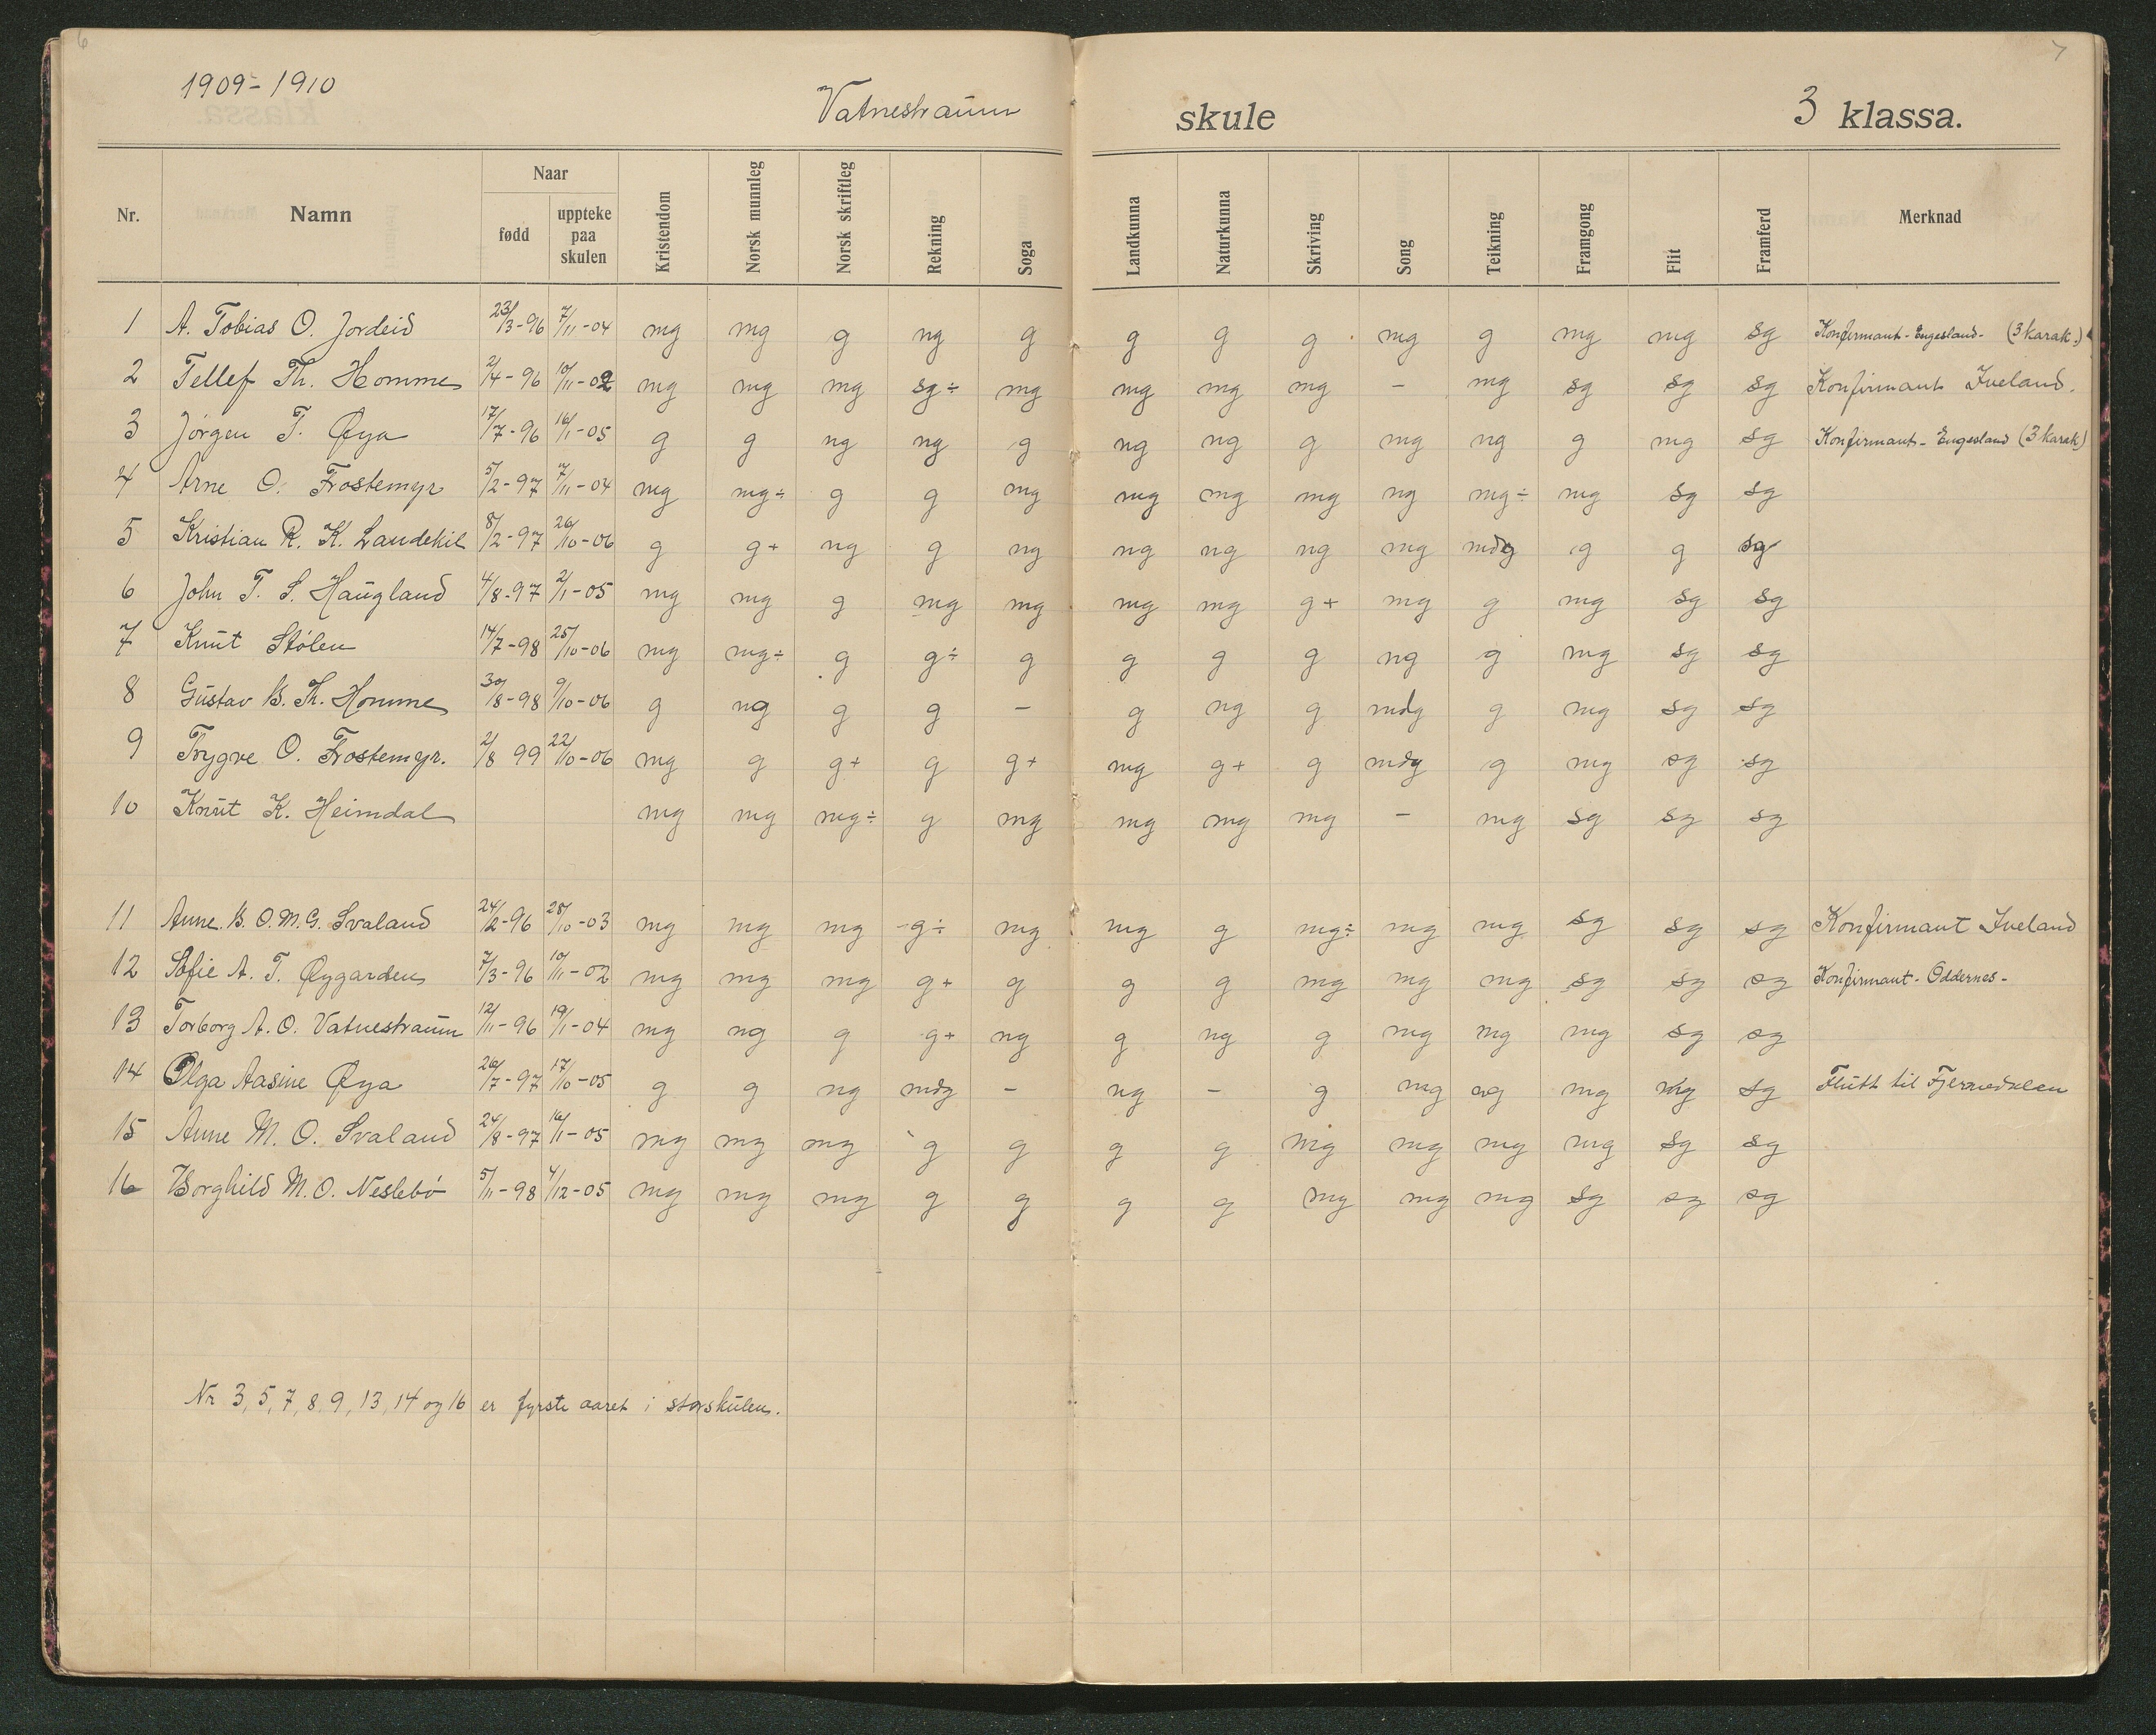 6
7
1909-1910
Vatnestraum skule 3 klassa.
Nr. Namn Naar fødd uppteke paa skulen Kristendom Norsk munnleg Norsk skriftleg Rekning Soga Landkunna Naturkunna Skriving Song Teikning Framgong Flit Framferd Merknad
1 A. Tobias O. Jordeid 23/3-96 7/11-04 mg mg g ng g g g g mg g mg mg sg Konfirmant-Engesland- (3 karak.)
2 Tellef Th. Homme 2/4-96 10/11-02 mg mg mg sg÷ mg mg mg mg - mg sg sg sg Konfirmant Iveland.
3 Jørgen T. Øya 17/7-96 16/1-05 g g ng ng g ng ng g mg ng g mg sg Konfirmant-Engesland (3 karak)
4 Arne O. Frostemyr 5/2-97 7/11-04 mg mg÷ g g mg mg mg mg ng mg÷ mg sg sg
5 Kristian R. K. Landekil 8/2-97 26/10-06 g g+ ng g ng ng ng ng mg mdg g g sg
6 John T. S. Haugland 4/8-97 2/1-05 mg mg g mg mg mg mg g+ mg g mg sg sg
7 Knut Stølen 14/7-98 25/10-06 mg mg÷ g g÷ g g g g ng g mg sg sg
8 Gustav B. Th. Homme 30/8-98 9/10-06 g ng g g - g ng g mdg g mg sg sg
9 Trygve O. Frostemyr. 2/8 99 22/10-06 mg g g+ g g+ mg g+ g mdg g mg sg sg
10 Knut K. Heimdal mg mg mg÷ g mg mg mg mg - mg sg sg sg
11 Anne. B. O. M. G. Svaland 24/2-96 28/10-03 mg mg mg g÷ mg mg g mg÷ mg mg sg sg sg Konfirmant Iveland
12 Sofie A. T. Øygarden 7/3-96 10/11-02 mg mg mg g+ g g g mg mg mg sg sg sg Konfirmant-Oddernes-
13 Torborg A. O. Vatnestraum 12/11-96 19/1-04 mg ng g g+ ng g ng g mg mg mg sg sg
14 Olga Aasine Øya 26/7-97 17/10-05 g g ng mdg - ng - g mg ng mg mg sg Flutt til Fjermedalen
15 Anne M. O. Svaland 24/8-97 16/1-05 mg mg mg g g g g mg mg mg mg sg sg
16 Borghild M. O. Neslebø 5/11-98 4/12-05 mg mg mg g g g g mg mg mg sg sg sg
Nr 3, 5, 7, 8, 9, 13, 14 og 16 er fyrste aaret i storskulen.